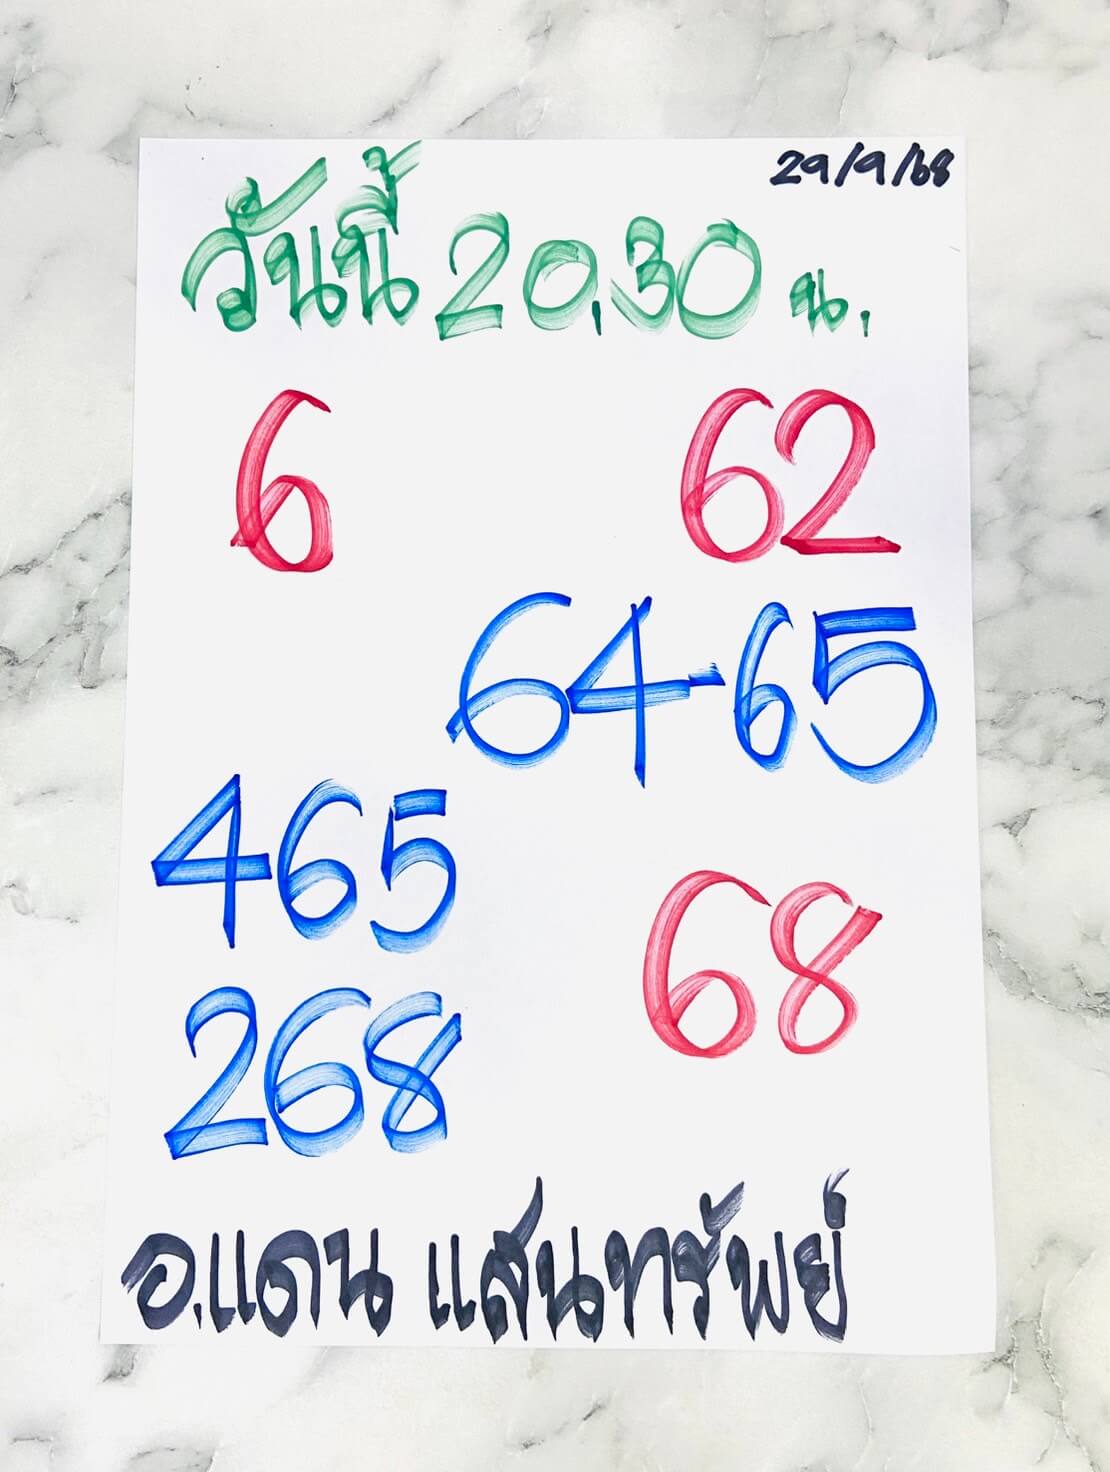 29/9/68
วันนี้ 20.30 น.
6 62
64-65
465
68
268
อ.แดน แสนทรัพย์